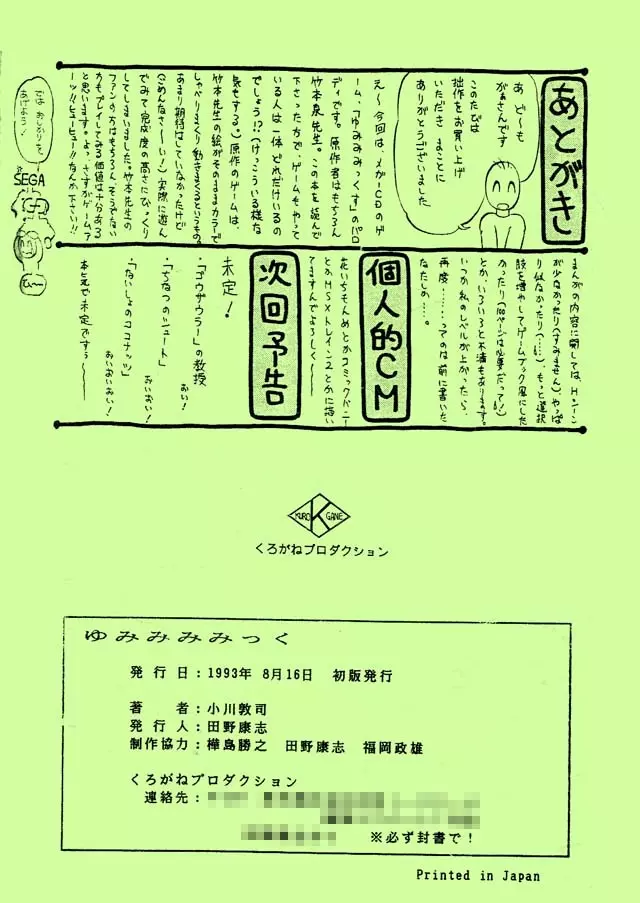 あとがき
あ ど〜も
がぁさんです
このたびは
拙作をお買い上げ
いただき まことに
ありがとうございました
え〜今回は、メガーCDのゲ
ーム、「ゆみみみっくす」のパロ
ディです。原作者はもちろん
竹本泉先生。この本を読んで
下さった方で、ゲームもやって
いる人は一体どれだけいるの
でしょう!?(けっこういる様な
気もする)原作のゲームは、
竹本先生の絵がそのままカラーで
しゃべりまくり動きまくるというもの。
あまり期待はしていなかったけど
(ごめんなさ〜い!)実際に遊ん
でみて完成度の高さにびっくり
してしまいました。竹本先生の
ファンの方はもちろん、そうでない
方もプレイしてみる価値は十分ある
と思います。よっ、さすがゲームア
ーツ!!ヒューヒュー!!なんか下さい!!
ではおしかりを
あげよう!
SEGA
まんがの内容に関しては、Hシーン
が少なかったり(すみません)やっぱ
り似なかったり(…)、もっと選択
肢を増やしてゲームブック風にした
かったり(100ページは必要だって!)
とか、いろいろと不満もあります。
いつか私のレベルが上がったら、
再度……ってのは前に書いた
なたしか…。
個人的CM
花いちもんめとかコミックバニー
とかMSXトレイン2とかに描い
てますんでよろしく〜
次回予告
未定!
・「ゴウザウラー」の教授
おい!
・「ちなつのシュート」
おいおい!
・「ないしょのココナッツ」
おいおいおい!
本とえや未定ですぅ〜
KURO K GANE
くろがねプロダクション
ゆみみみみっく
発 行 日：1993年 8月16日 初版発行
著 者：小川敦司
発 行 人：田野康志
制作協力：樺島勝之 田野康志 福岡政雄
くろがねプロダクション
連絡先：
※必ず封書で！
Printed in Japan